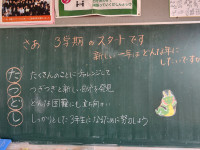 さあ 3学期のスタートです
新しい一年はどんな年に
したいですか
た たくさんのことにチャレンジして
つ つぎつぎと新しい自分を発見
ど どんな困難にも立ち向かい
し しっかりとした3年生となるために努力しよう